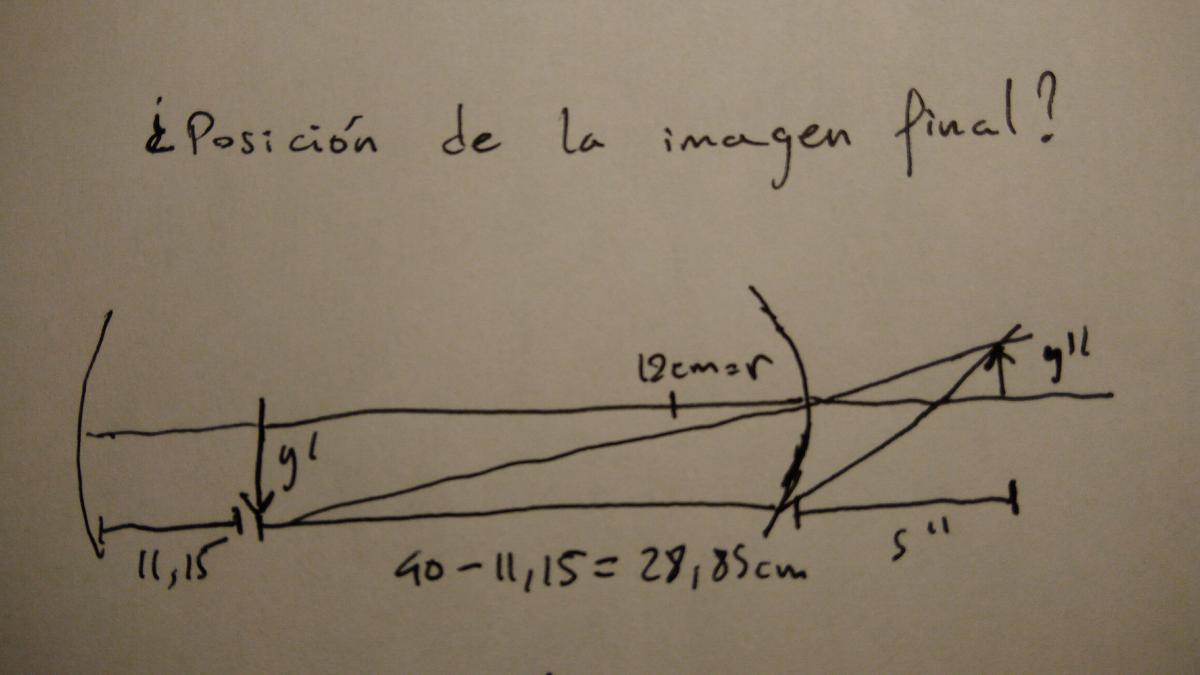 ¿Posición de la imagen final?
12cm=r
y''
y'
11,15
40-11,15=28,85cm
s''